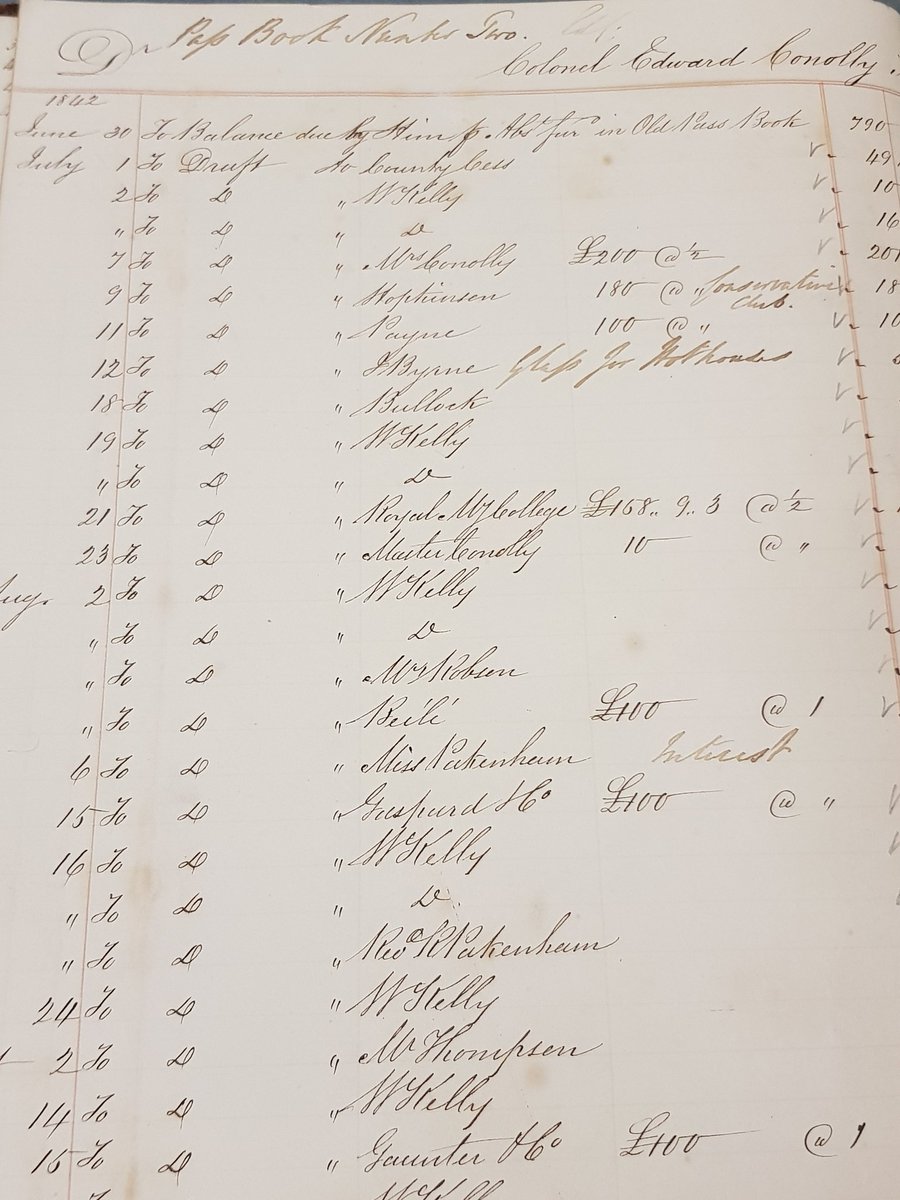 Dr Pass Book Number Two.
Colonel Edward Conolly
1842
June 30 To Balance due by Him p. Abst furd in Old Pass Book 790
July 1 To Draft to County Cess 49
2 To Do " W Kelly 10
" To Do " Do 16
7 To Do " Mrs Conolly £200 @ ½ 201
9 To Do " Hopkinson 180 @ " Conservative Club. 18
11 To Do " Payne 100 @ " 10
12 To Do " J Byrne Glass for Hothouses
18 To Do " Bullock
19 To Do " W Kelly
" To Do " Do
21 To Do " Royal My College £158.. 9.. 3 @ ½
23 To Do " Master Conolly 10 @ "
Aug. 2 To Do " W Kelly
" To Do " Do
" To Do " Mrs Robson
" To Do " £100 @ 1
6 To Do " Miss Pakenham Interest
15 To Do " Gaspard & Co £100 @ "
16 To Do " W Kelly
" To Do " Do
" To Do " Revd R Pakenham
24 To Do " W Kelly
2 To Do " Mr Thompson
14 To Do " W Kelly
15 To Do " Gaunter & Co £100 @ 1
To W Kelly